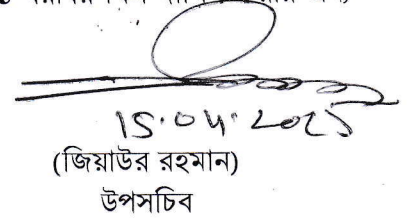 15.04.2025
(জিয়াউর রহমান)
উপসচিব